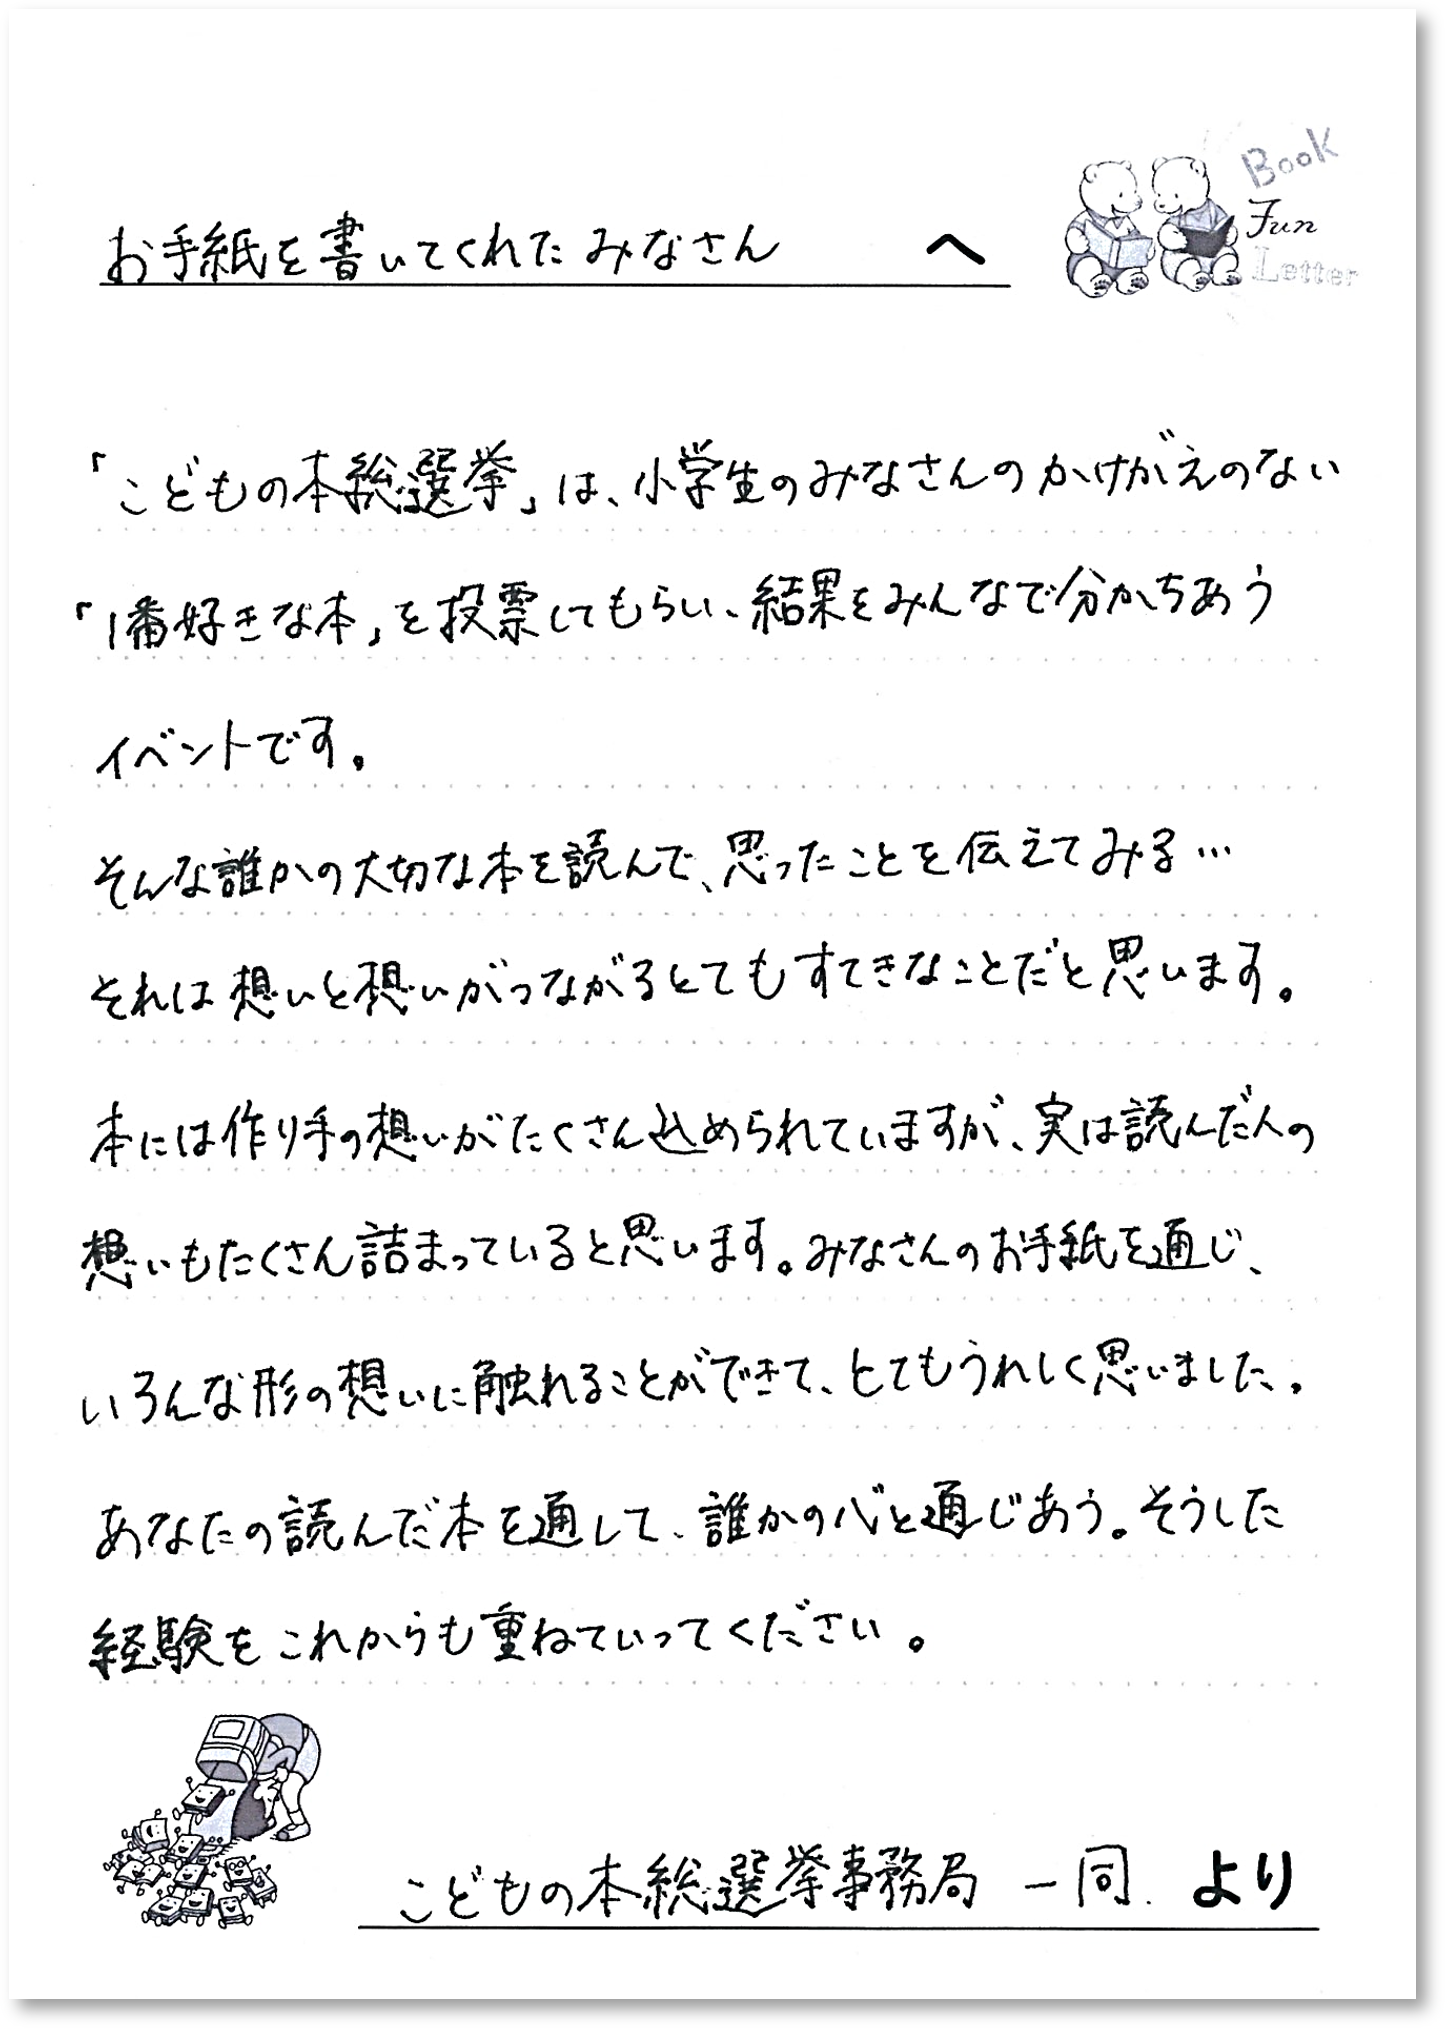 お手紙を書いてくれたみなさん へ
Book
Fun
Letter
「こどもの本総選挙」は、小学生のみなさんのかけがえのない
「1番好きな本」を投票してもらい、結果をみんなで分かちあう
イベントです。
そんな誰かの大切な本を読んで、思ったことを伝えてみる…
それは想いと想いがつながるとてもすてきなことだと思います。
本には作り手の想いがたくさん込められていますが、実は読んだ人の
想いもたくさん詰まっていると思います。みなさんのお手紙を通じ、
いろんな形の想いに触れることができて、とてもうれしく思いました。
あなたの読んだ本を通して、誰かの心と通じあう。そうした
経験をこれからも重ねていってください。
こどもの本総選挙事務局 一同 より